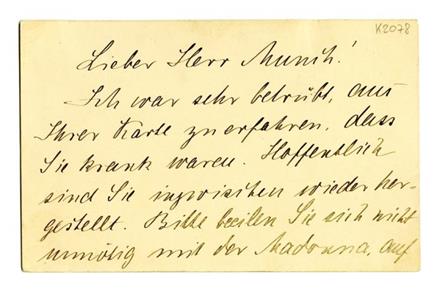 K2078
Lieber Herr Munch!
Ich war sehr betrübt, aus
Ihrer Karte zu erfahren, dass
Sie krank waren. Hoffentlich
sind Sie inzwischen wieder her-
gestellt. Bitte beeilen Sie sich nicht
unnötig mit der Madonna, auf